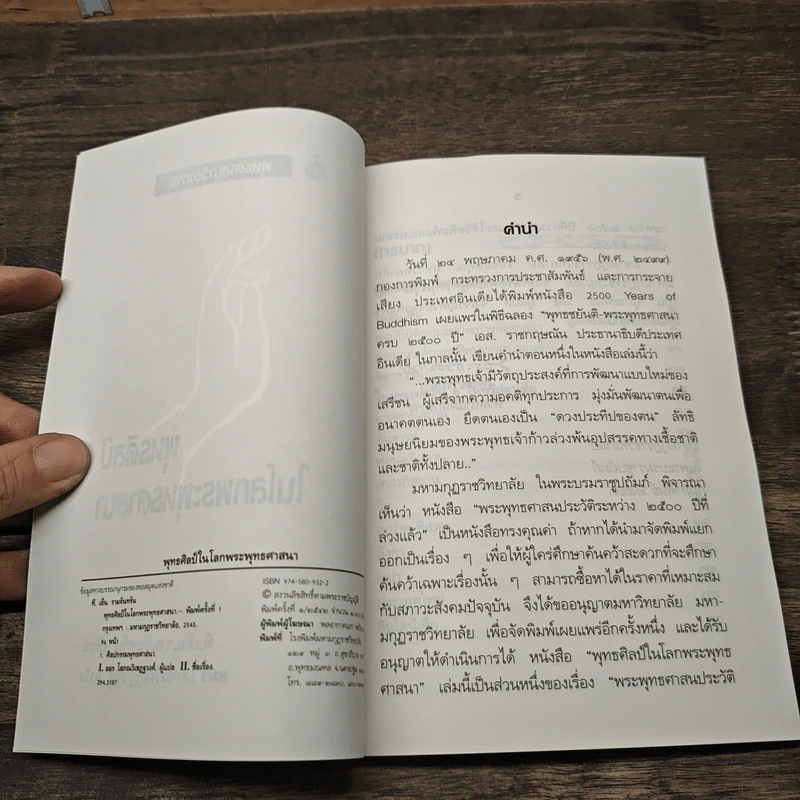 พุทธศิลป์ในโลกพระพุทธศาสนา
ข้อมูลทางบรรณานุกรมของหอสมุดแห่งชาติ
ที. เส็น. รามจันทรัน
พุทธศิลป์ในโลกพระพุทธศาสนา.-- พิมพ์ครั้งที่ 1
กรุงเทพฯ : มหามกุฏราชวิทยาลัย, 2543.
๖๘ หน้า
1. ศิลปกรรมพุทธศาสนา.
I. อมร โสภณวิเชฎฐวงศ์, ผู้แปล II. ชื่อเรื่อง.
294.3187
ISBN 974-580-932-2
© สงวนลิขสิทธิ์ตามพระราชบัญญัติ
พิมพ์ครั้งที่ ๑/๒๕๔๓ จำนวน
ผู้พิมพ์ผู้โฆษณา พลอากาศเอก
พิมพ์ที่ โรงพิมพ์มหามกุฏราชวิทยาลัย
หมู่ ๓ ถ.สุขาภิบาล
อ.พุทธมณฑล จ.นครปฐม
โทร.
คำนำ
วันที่ ๒๔ พฤษภาคม ค.ศ. ๑๙๕๖ (พ.ศ. ๒๔๙๙)
กองการพิมพ์ กระทรวงการประชาสัมพันธ์ และการกระจาย
เสียง ประเทศอินเดียได้พิมพ์หนังสือ 2500 Years of
Buddhism เผยแพร่ในพิธีฉลอง “พุทธชยันติ-พระพุทธศาสนา
ครบ ๒๕๐๐ ปี” เอส. ราชกฤษณัน ประธานาธิบดีประเทศ
อินเดีย ในกาลนั้น เขียนคำนำตอนหนึ่งในหนังสือเล่มนี้ว่า
“...พระพุทธเจ้ามีวัตถุประสงค์ที่การพัฒนาแบบใหม่ของ
เสรีชน ผู้เสรีจากความอคติทุกประการ มุ่งมั่นพัฒนาตนเพื่อ
อนาคตตนเอง ยึดตนเองเป็น “ดวงประทีปของตน” ลัทธิ
มนุษยนิยมของพระพุทธเจ้าก้าวล่วงพ้นอุปสรรคทางเชื้อชาติ
และชาติทั้งปลาย..”
มหามกุฏราชวิทยาลัย ในพระบรมราชูปถัมภ์ พิจารณา
เห็นว่า หนังสือ “พระพุทธศาสนประวัติระหว่าง ๒๕๐๐ ปีที่
ล่วงแล้ว” เป็นหนังสือทรงคุณค่า ถ้าหากได้นำมาจัดพิมพ์แยก
ออกเป็นเรื่อง ๆ เพื่อให้ผู้ใคร่ศึกษาค้นคว้าสะดวกที่จะศึกษา
ค้นคว้าเฉพาะเรื่องนั้น ๆ สามารถซื้อหาได้ในราคาที่เหมาะสม
กับสภาวะสังคมปัจจุบัน จึงได้ขออนุญาตมหาวิทยาลัย มหา-
มกุฏราชวิทยาลัย เพื่อจัดพิมพ์เผยแพร่อีกครั้งหนึ่ง และได้รับ
อนุญาตให้ดำเนินการได้ หนังสือ “พุทธศิลป์ในโลกพระพุทธ
ศาสนา” เล่มนี้เป็นส่วนหนึ่งของเรื่อง “พระพุทธศาสนประวัติ